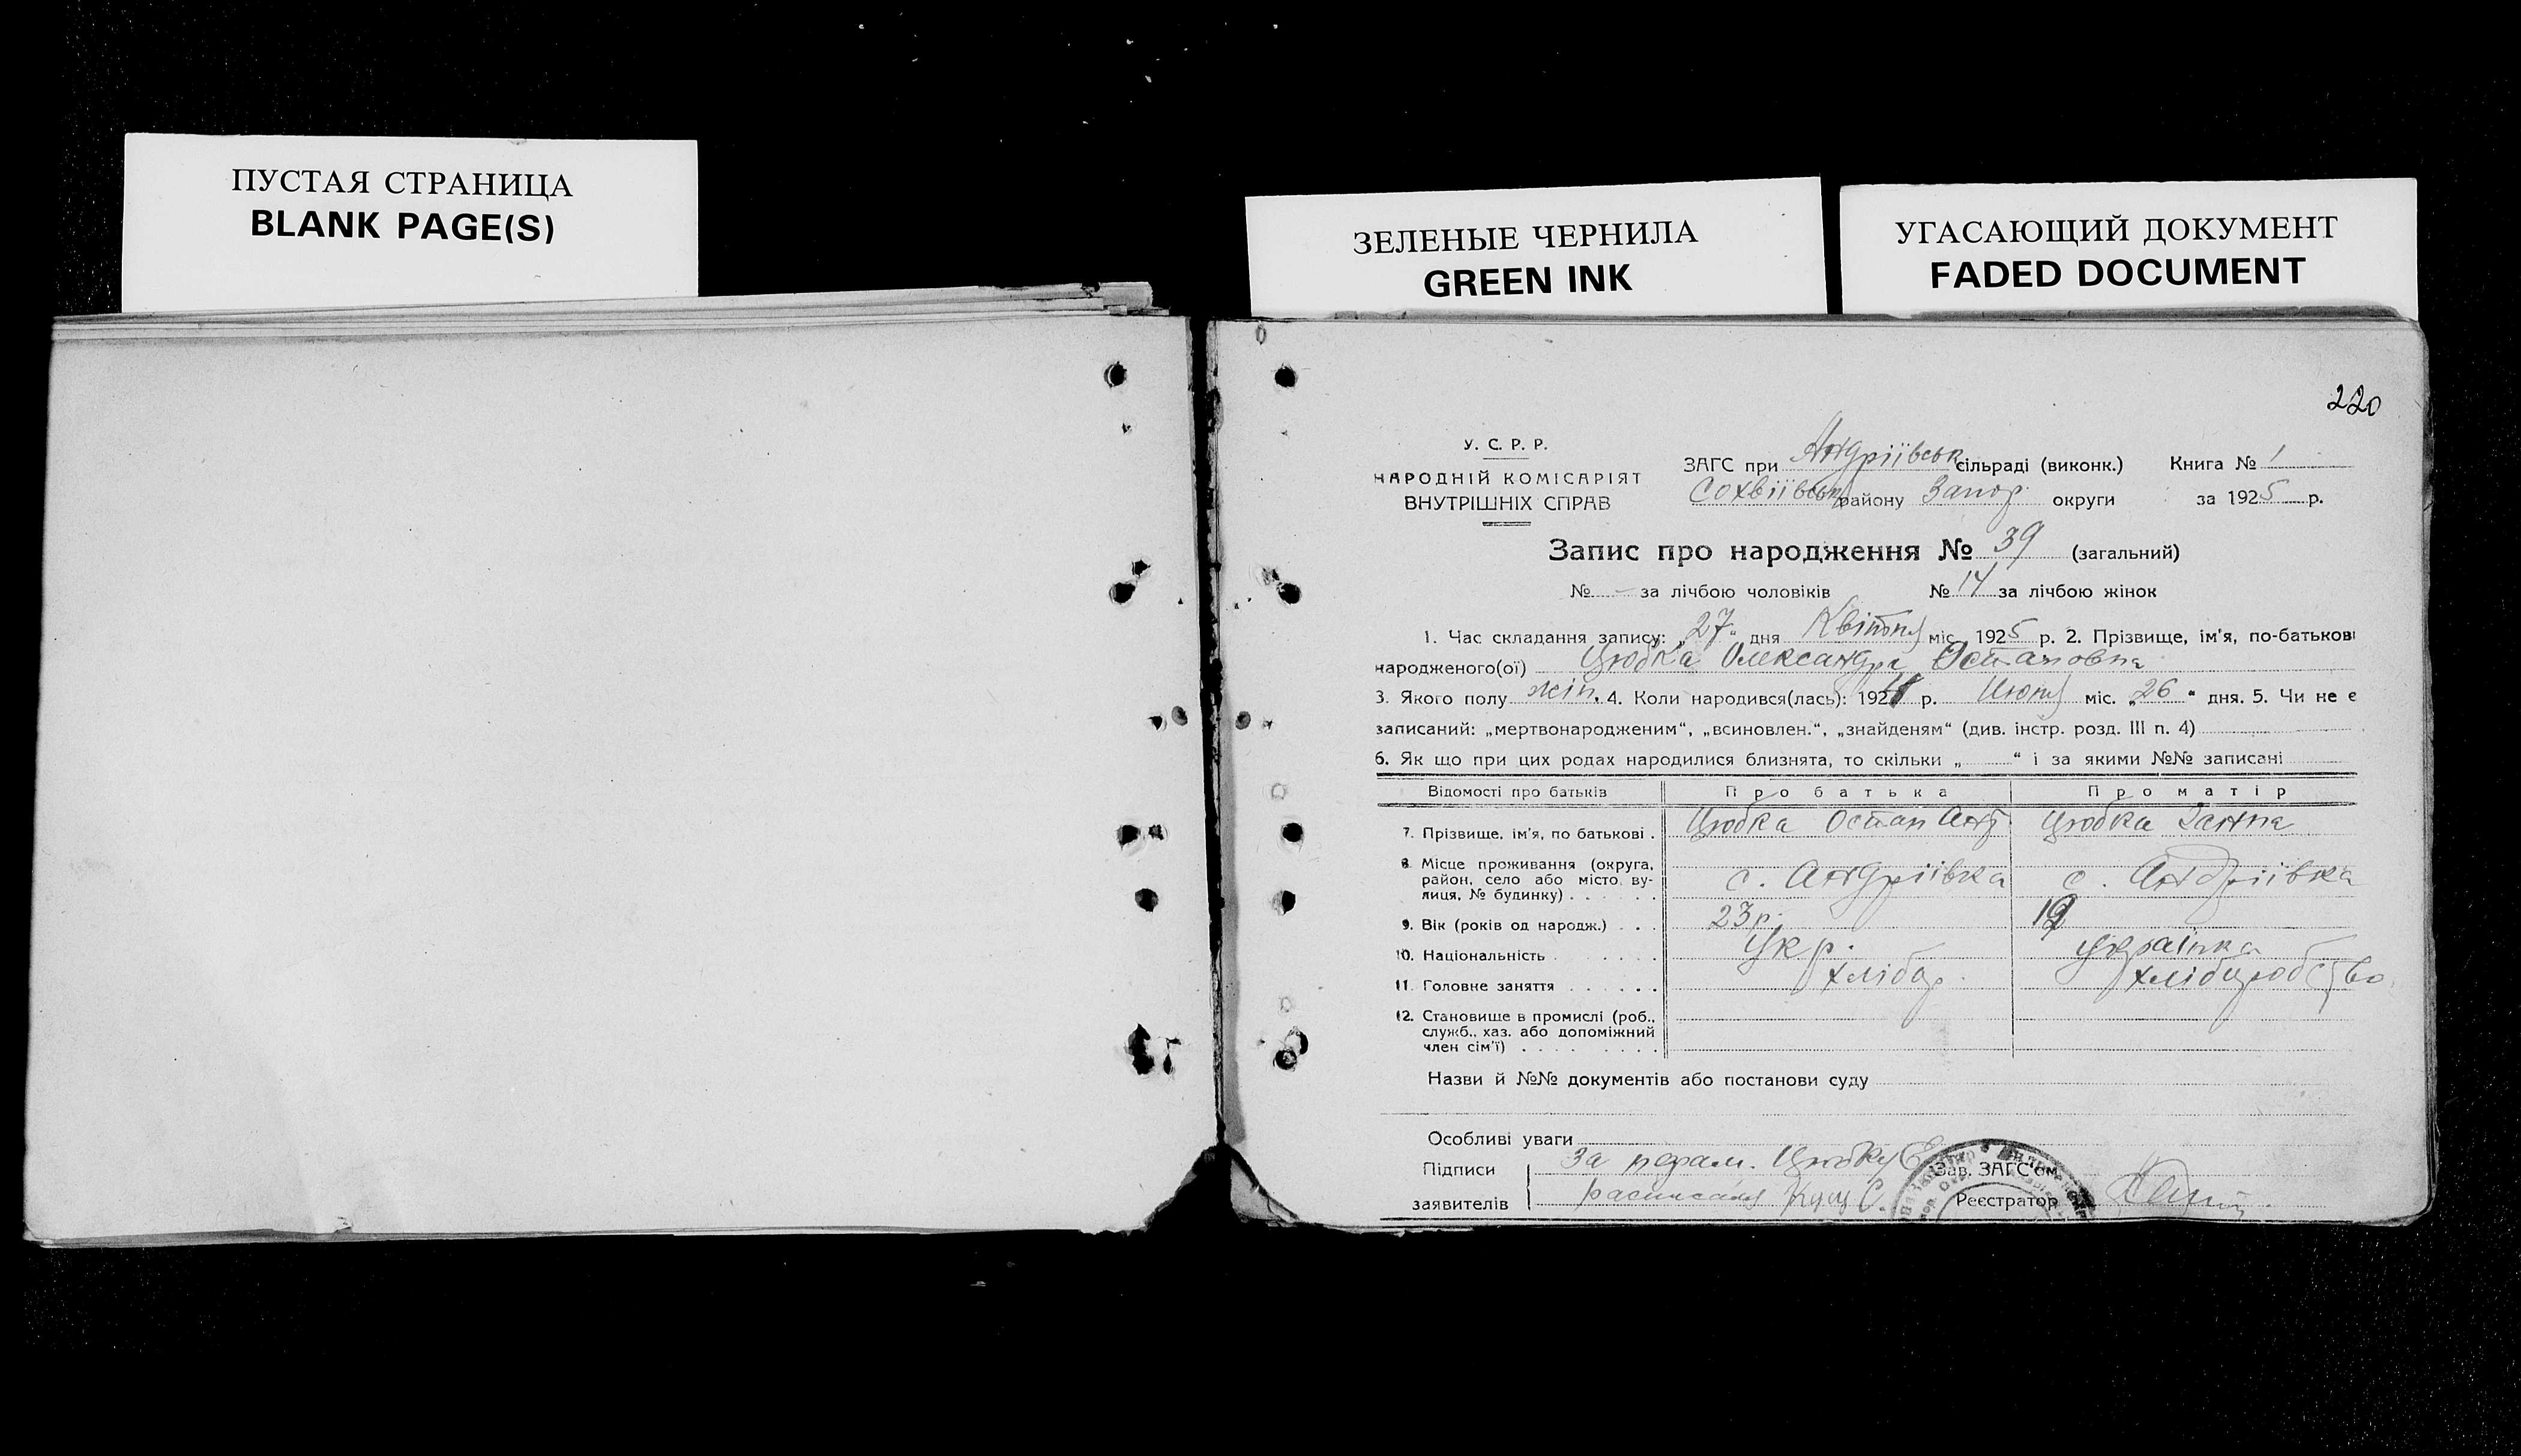 ПУСТАЯ СТРАНИЦА
BLANK PAGE(S)
ЗЕЛЕНЫЕ ЧЕРНИЛА
GREEN INK
УГАСАЮЩИЙ ДОКУМЕНТ
FADED DOCUMENT
220
У. С. Р. Р.
НАРОДНІЙ КОМІСАРІЯТ
ВНУТРІШНІХ СПРАВ
ЗАГС при Андріївськ сільраді (виконк.) Книга № 1
району Запор. округи за 1925 р.
Запис про народження № 39 (загальний)
№ - за лічбою чоловіків № 14 за лічбою жінок
1. Час складання запису: „27" дня Квітня міс. 1925 р. 2. Прізвище, ім'я, по-батькові
народженого(ої) Цюбка Олександра Остаповна
3. Якого полу жін. 4. Коли народився(лась): 192 р. Июня міс. „26" дня. 5. Чи не є
записаний: „мертвонародженим", „всиновлен.", „знайденям" (див. інстр. розд. III п. 4)
6. Як що при цих родах народилися близнята, то скільки „ " і за якими №№ записані
Відомості про батьків Про батька Про матір
7. Прізвище, ім'я, по батькові . Цюбка Остап Анд. Цюбка Ганна
8. Місце проживання (округа, район, село або місто, вулиця, № будинку) . . . . . . с. Андріївка с. Андріївка
9. Вік (років од народж.) . . . 23 р. 19
10. Національність . . . . . . Укр. Українка
11. Головне заняття . . . . . . хлібор. хліборобство
12. Становище в промислі (роб.,
служб., хаз. або допоміжний
член сім'ї) . . . . . . . .
Назви й №№ документів або постанови суду
Особливі уваги
Підписи За Цюбку Зав. ЗАГС'ом
заявителів Реєстратор